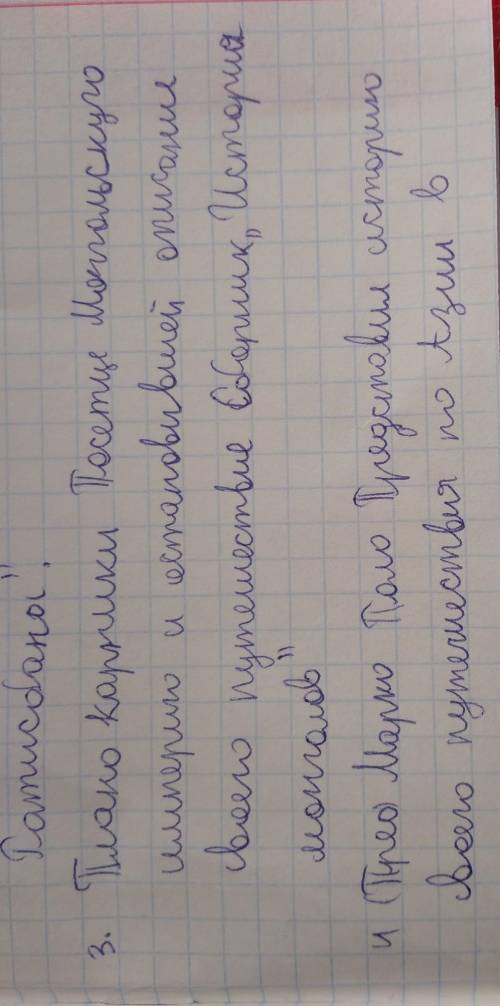 Ратисбаны".
3. Плано Карпики Посетце Монгольскуго
империю и остановившей описания
своего путешествие Сборник „История
монголов"
4 (Пре) Марко Поло Представил историю
своего путешествия по Азии в